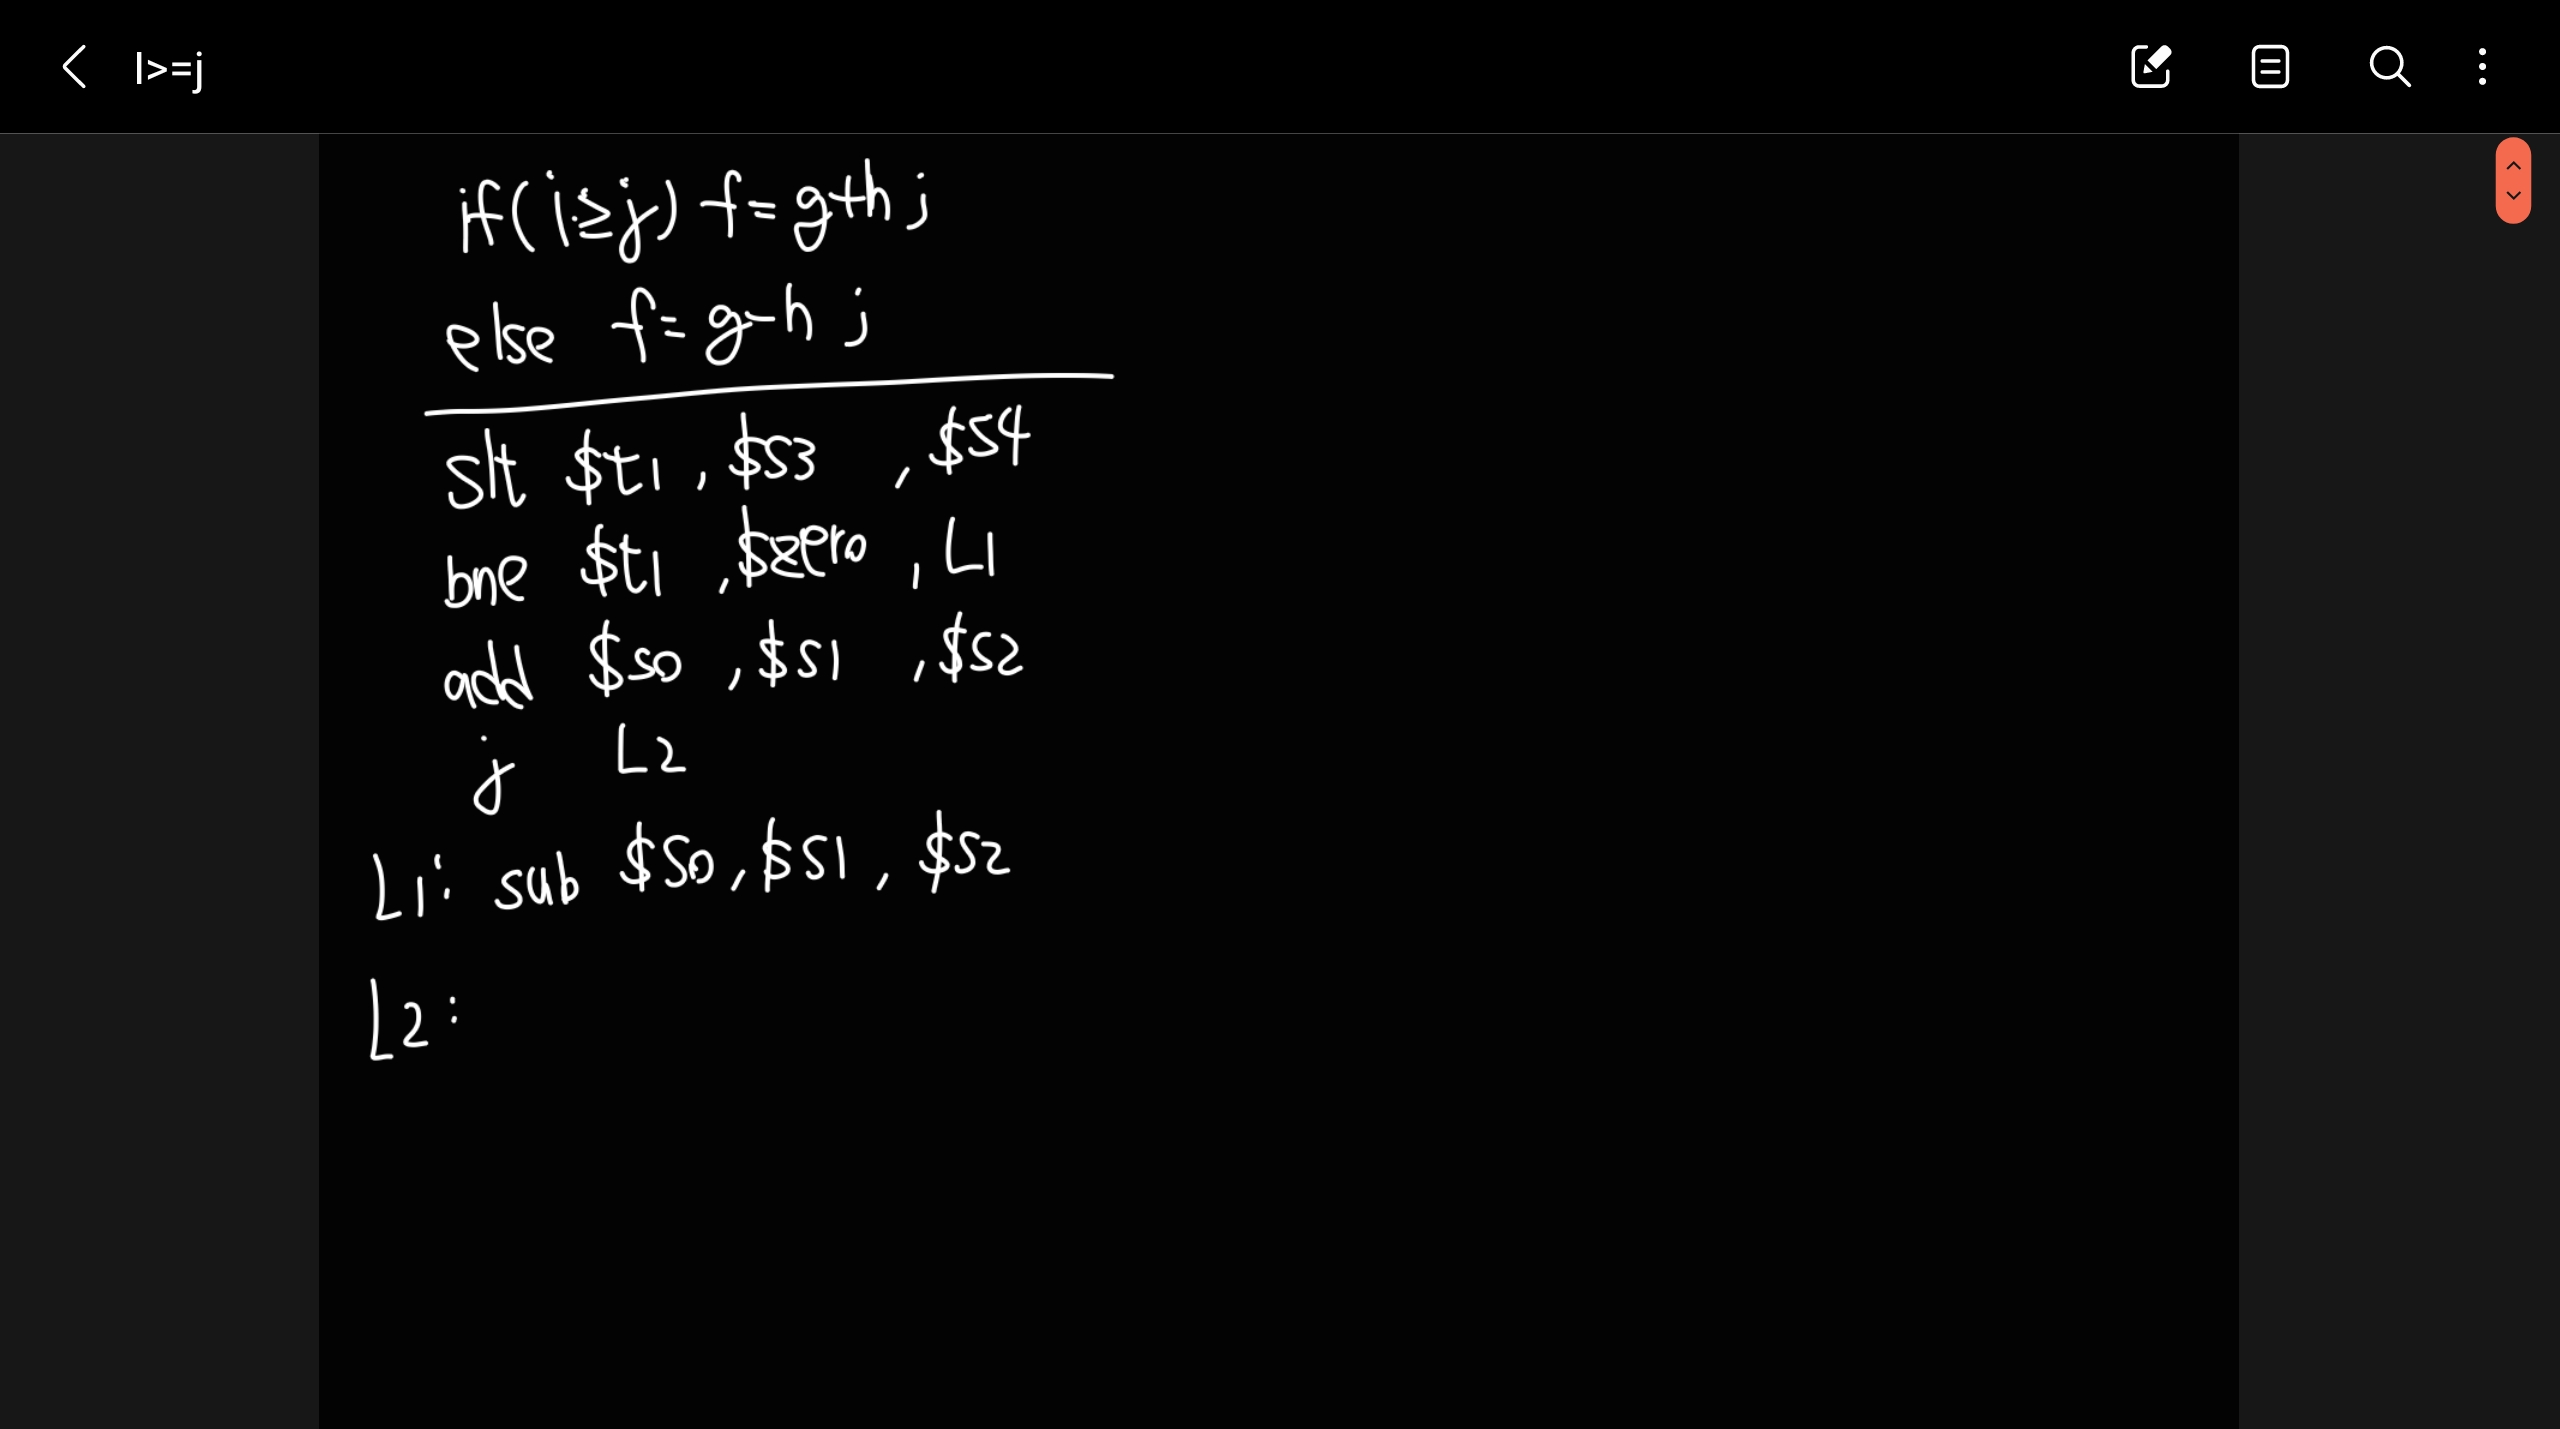 I>=j
if(i≥j) f=g+h;
else f=g-h;
slt $t1, $s3, $s4
bne $t1, $zero, L1
add $s0, $s1, $s2
j L2
L1: sub $s0, $s1, $s2
L2: